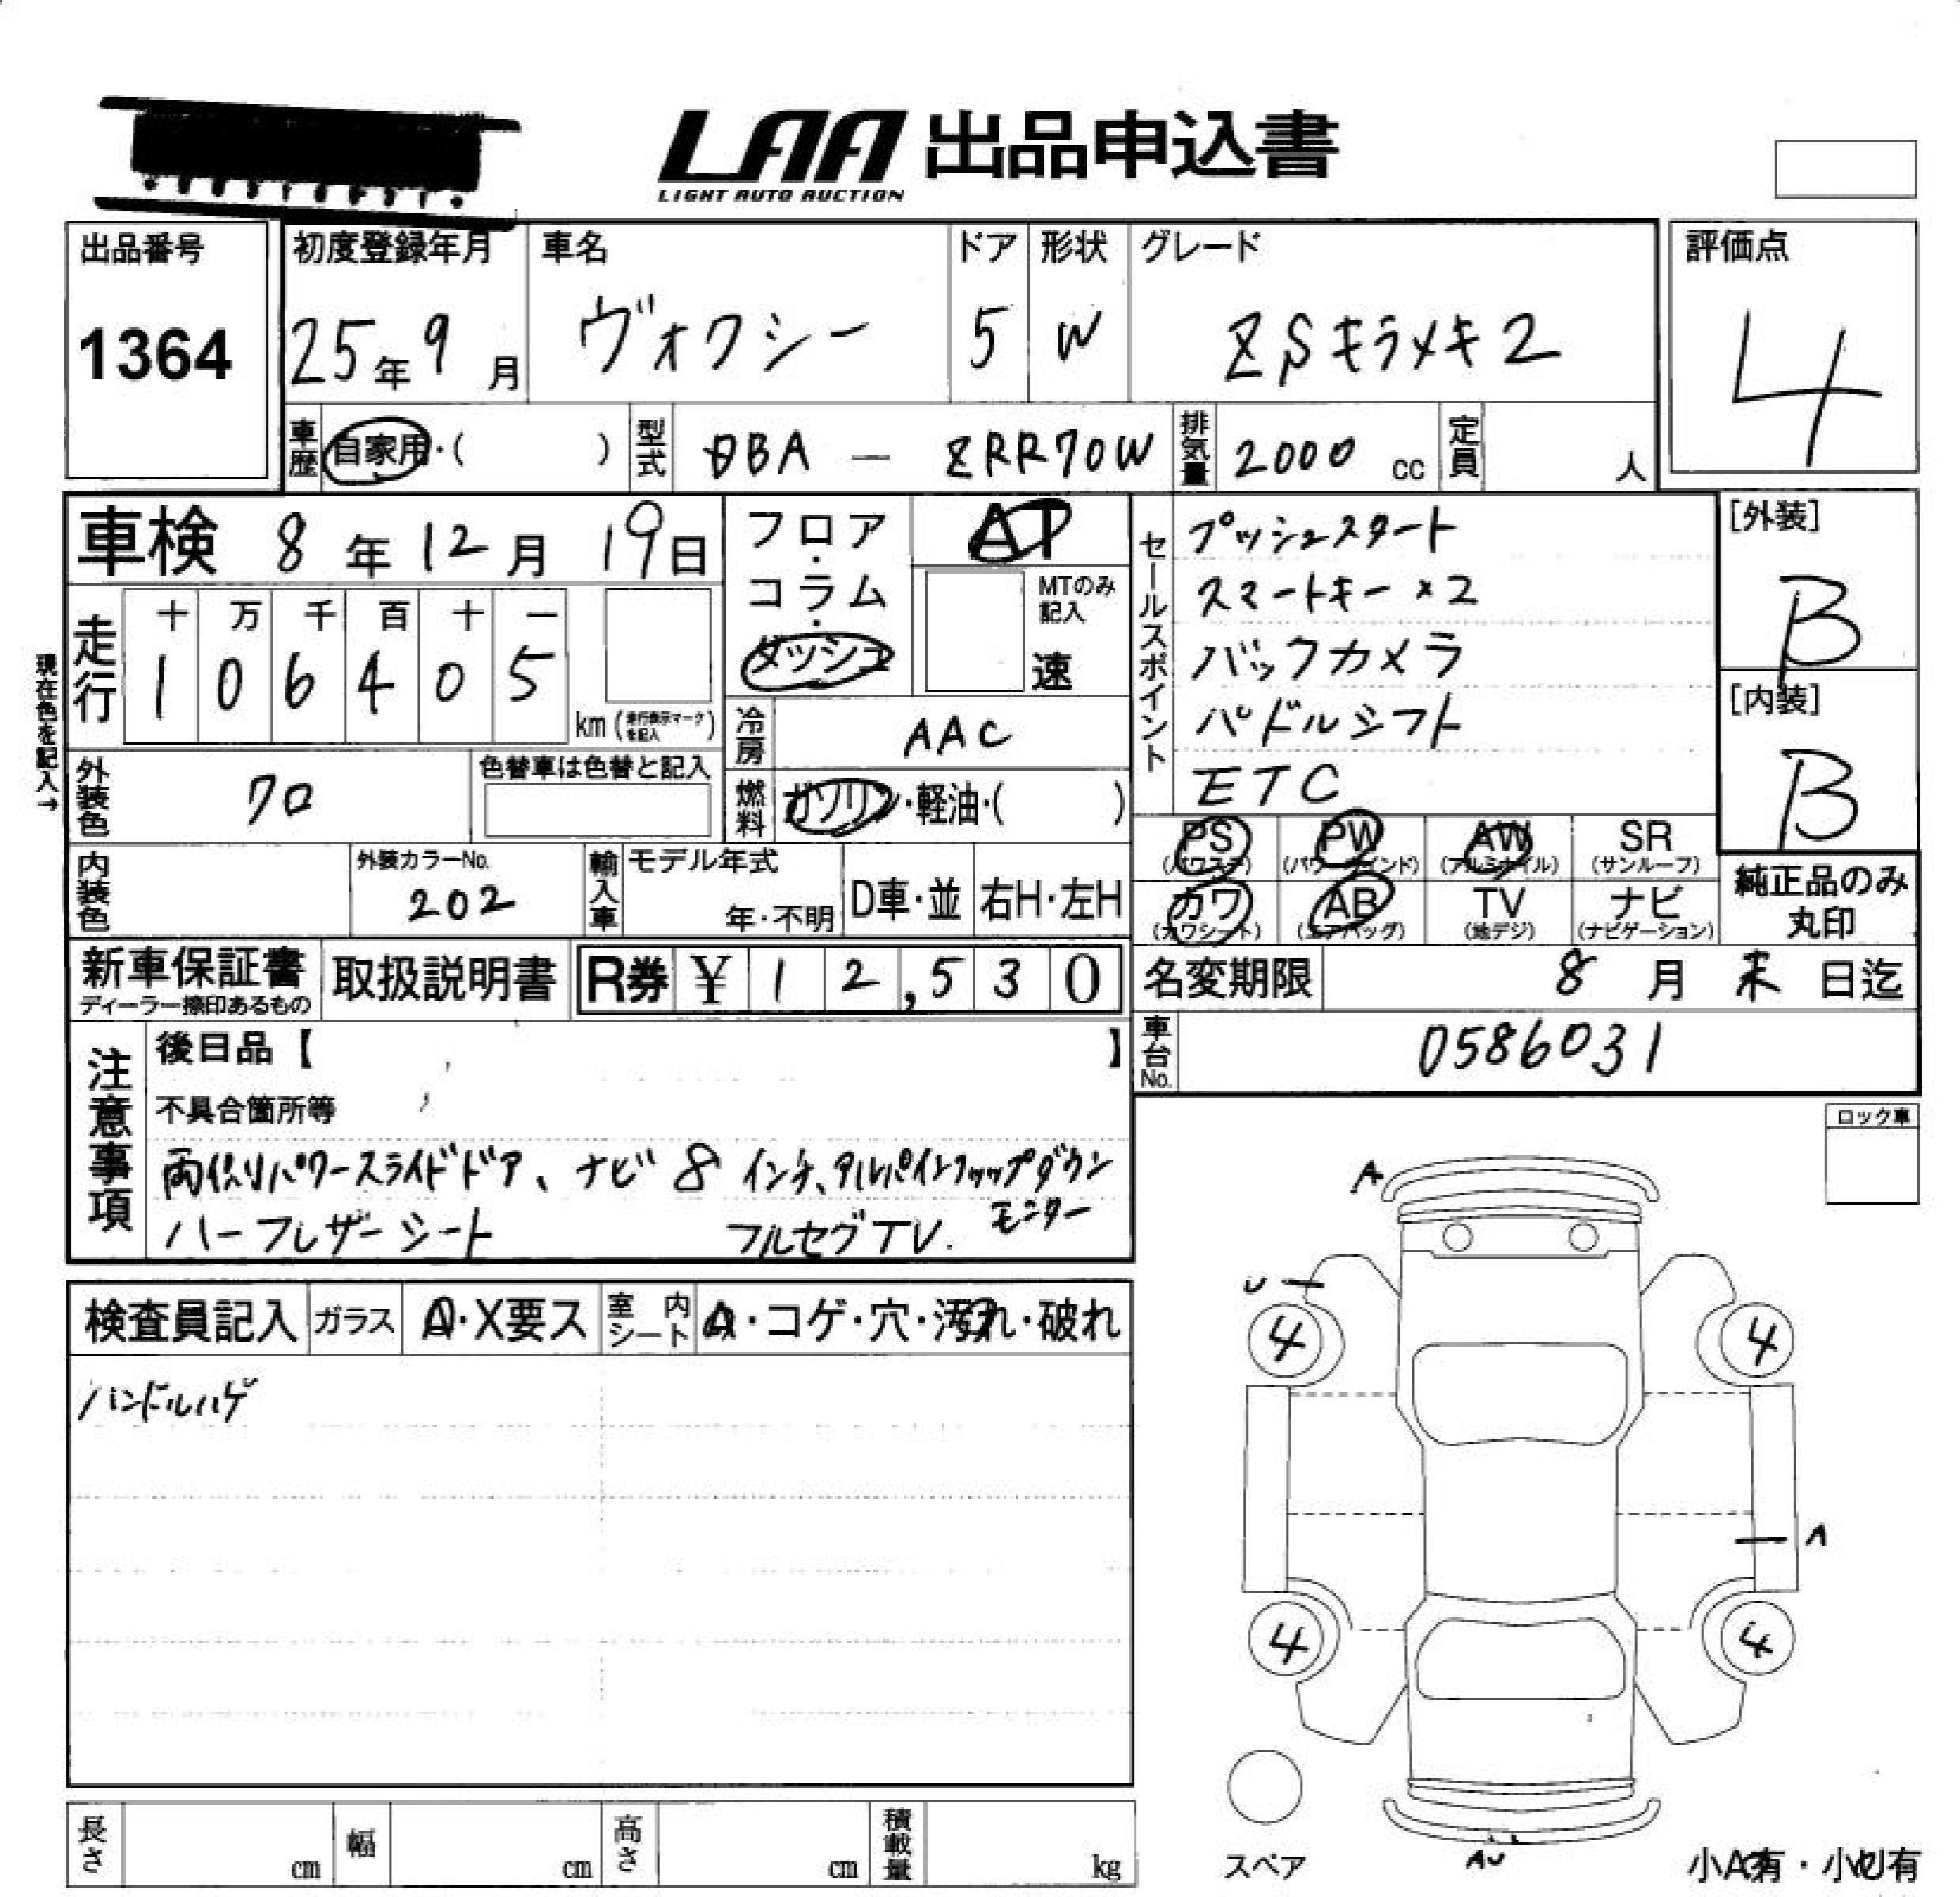 LAA 出品申込書
LIGHT AUTO AUCTION
出品番号
1364
初度登録年月
25年9月
車名
ヴォクシー
ドア
5
形状
W
グレード
ZSキラメキ2
評価点
4
車歴 自家用・( )
型式 DBA — ZRR70W
排気量 2000 cc
定員 人
車検 8年12月19日
走行
十 万 千 百 十 一
1 0 6 4 0 5
km(走行表示マークを記入)
現在色を記入→
フロア・コラム・ダッシュ
AT
MTのみ記入
速
冷房 AAC
燃料 ガソリン・軽油・( )
外装色 クロ
色替車は色替と記入
内装色
外装カラーNo.
202
輸入車
モデル年式
年・不明
D車・並
右H・左H
セールスポイント
プッシュスタート
スマートキー×2
バックカメラ
パドルシフト
ETC
[外装]
B
[内装]
B
PS (パワステ)
PW (パワーウインド)
AW (アルミホイル)
SR (サンルーフ)
カワ (カワシート)
AB (エアバッグ)
TV (地デジ)
ナビ (ナビゲーション)
純正品のみ
丸印
新車保証書
ディーラー捺印あるもの
取扱説明書
R券 ¥12,530
名変期限 8月末日迄
車台No. 0586031
注意事項
後日品【 】
不具合箇所等
両側パワースライドドア、ナビ8インチ、アルパインフリップダウン
モニター
ハーフレザーシート フルセグTV.
ロック車
検査員記入
ガラス A・X要ス
室内シート A・コゲ・穴・汚れ・破れ
ハンドルハゲ
A
U
4
4
A
4
4
AU
スペア
小A有・小U有
長さ cm
幅 cm
高さ cm
積載量 kg